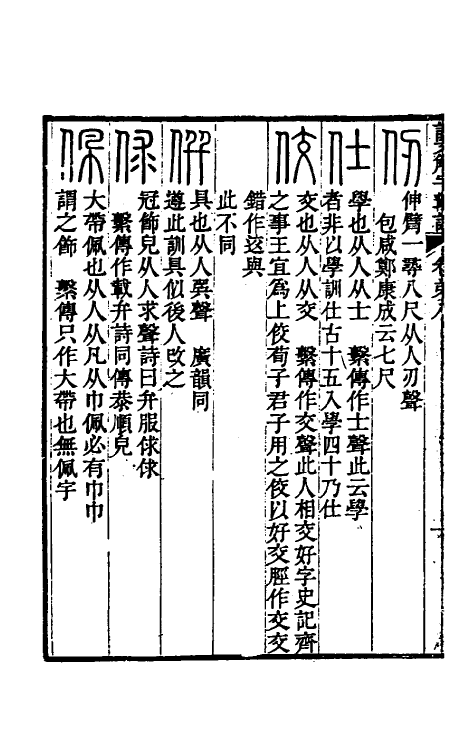 仞 伸臂一尋八尺从人刃聲
包咸鄭康成云七尺
仕 學也从人从士 繫傳作士聲此云學
者非以學訓仕古十五入學四十乃仕
佼 交也从人从交 繫傳作交聲此人相交好字史記齊
之事王宜爲上佼荀子君子用之佼以好交脛作交交
錯作䢒與
此不同
僎 具也从人巽聲 廣韻同
遵此訓具似後人改之
俅 冠飾皃从人求聲詩曰弁服俅俅
繫傳作載弁詩同傳恭順皃
佩 大帶佩也从人从凡从巾佩必有巾巾
謂之飾 繫傳只作大帶也無佩字